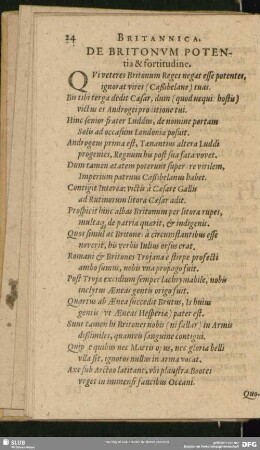 24 BRITANNICA.
DE BRITONVM POTEN-
tia & fortitudine.
QVi veteres Britonum Reges negat esse potentes,
ignorat vires (Cassibelane) tuas.
Bis tibi terga dedit Cæsar, dum (quod nequit hostis)
victus es Androgei proditione tui.
Hinc senior frater Luddus, de nomine portam
Solis ad occasum Londonia posuit.
Androgeus prima est, Tenantius altera Luddi
progenies, Regnum his post sua fata vovet.
Dum tamen ætatem poterunt superare virilem,
Imperium patruus Cassibelanus habet.
Contigit Interea: victis à Cæsare Gallis
ad Rutenorum litora Cæsar adit.
Prospicit hinc albas Britonum per litora rupes,
multaque de patria quærit, & indigenis.
Quos simul ac Britones à circumstantibus esse
noverit, his verbis Iulius orsus erat.
Romani & Britones Trojana è stirpe profecti
ambo sumus, nobis vna propago fuit.
Post Troyæ excidium semper lachrymabile, nobis
inclytus Æneas gentis origo fuit.
Quartus ab Ænea successit Brutus, is huius
gentis (vt Æneas Hesperiæ) pater est.
Sunt tamen hi Britones nobis (ni fallar) in Armis
dissimiles, quamvis sanguine contigui.
Quippe quibus nec Martis opus, nec gloria belli
vlla sit, ignotos nullus in arma vocat.
Axe sub Arctoo latitant, vbi plaustra Bootes
vrget in immensi faucibus Oceani.
Quo-
SLUB
DFG